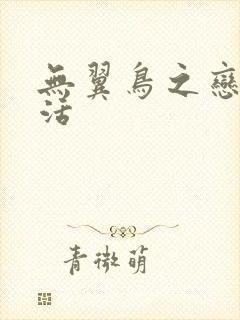 無翼鳥之戀
活
青微萌